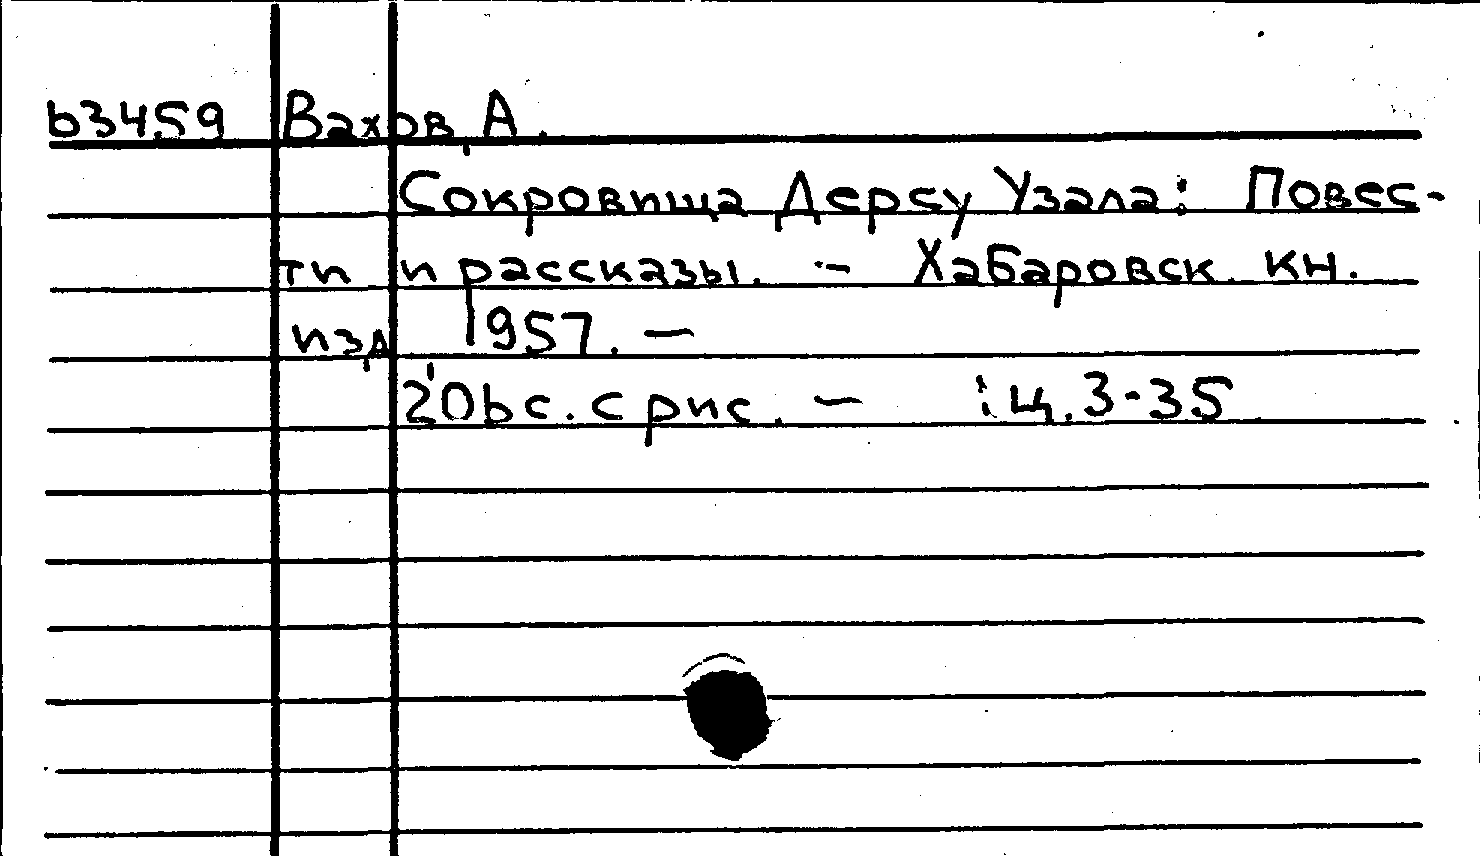 63459 Вахов, А.
Сокровища Дерсу Узала: Повес-
ти и рассказы. - Хабаровск. кн.
изд 1957. -
206с. с рис. - : ц. 3-35